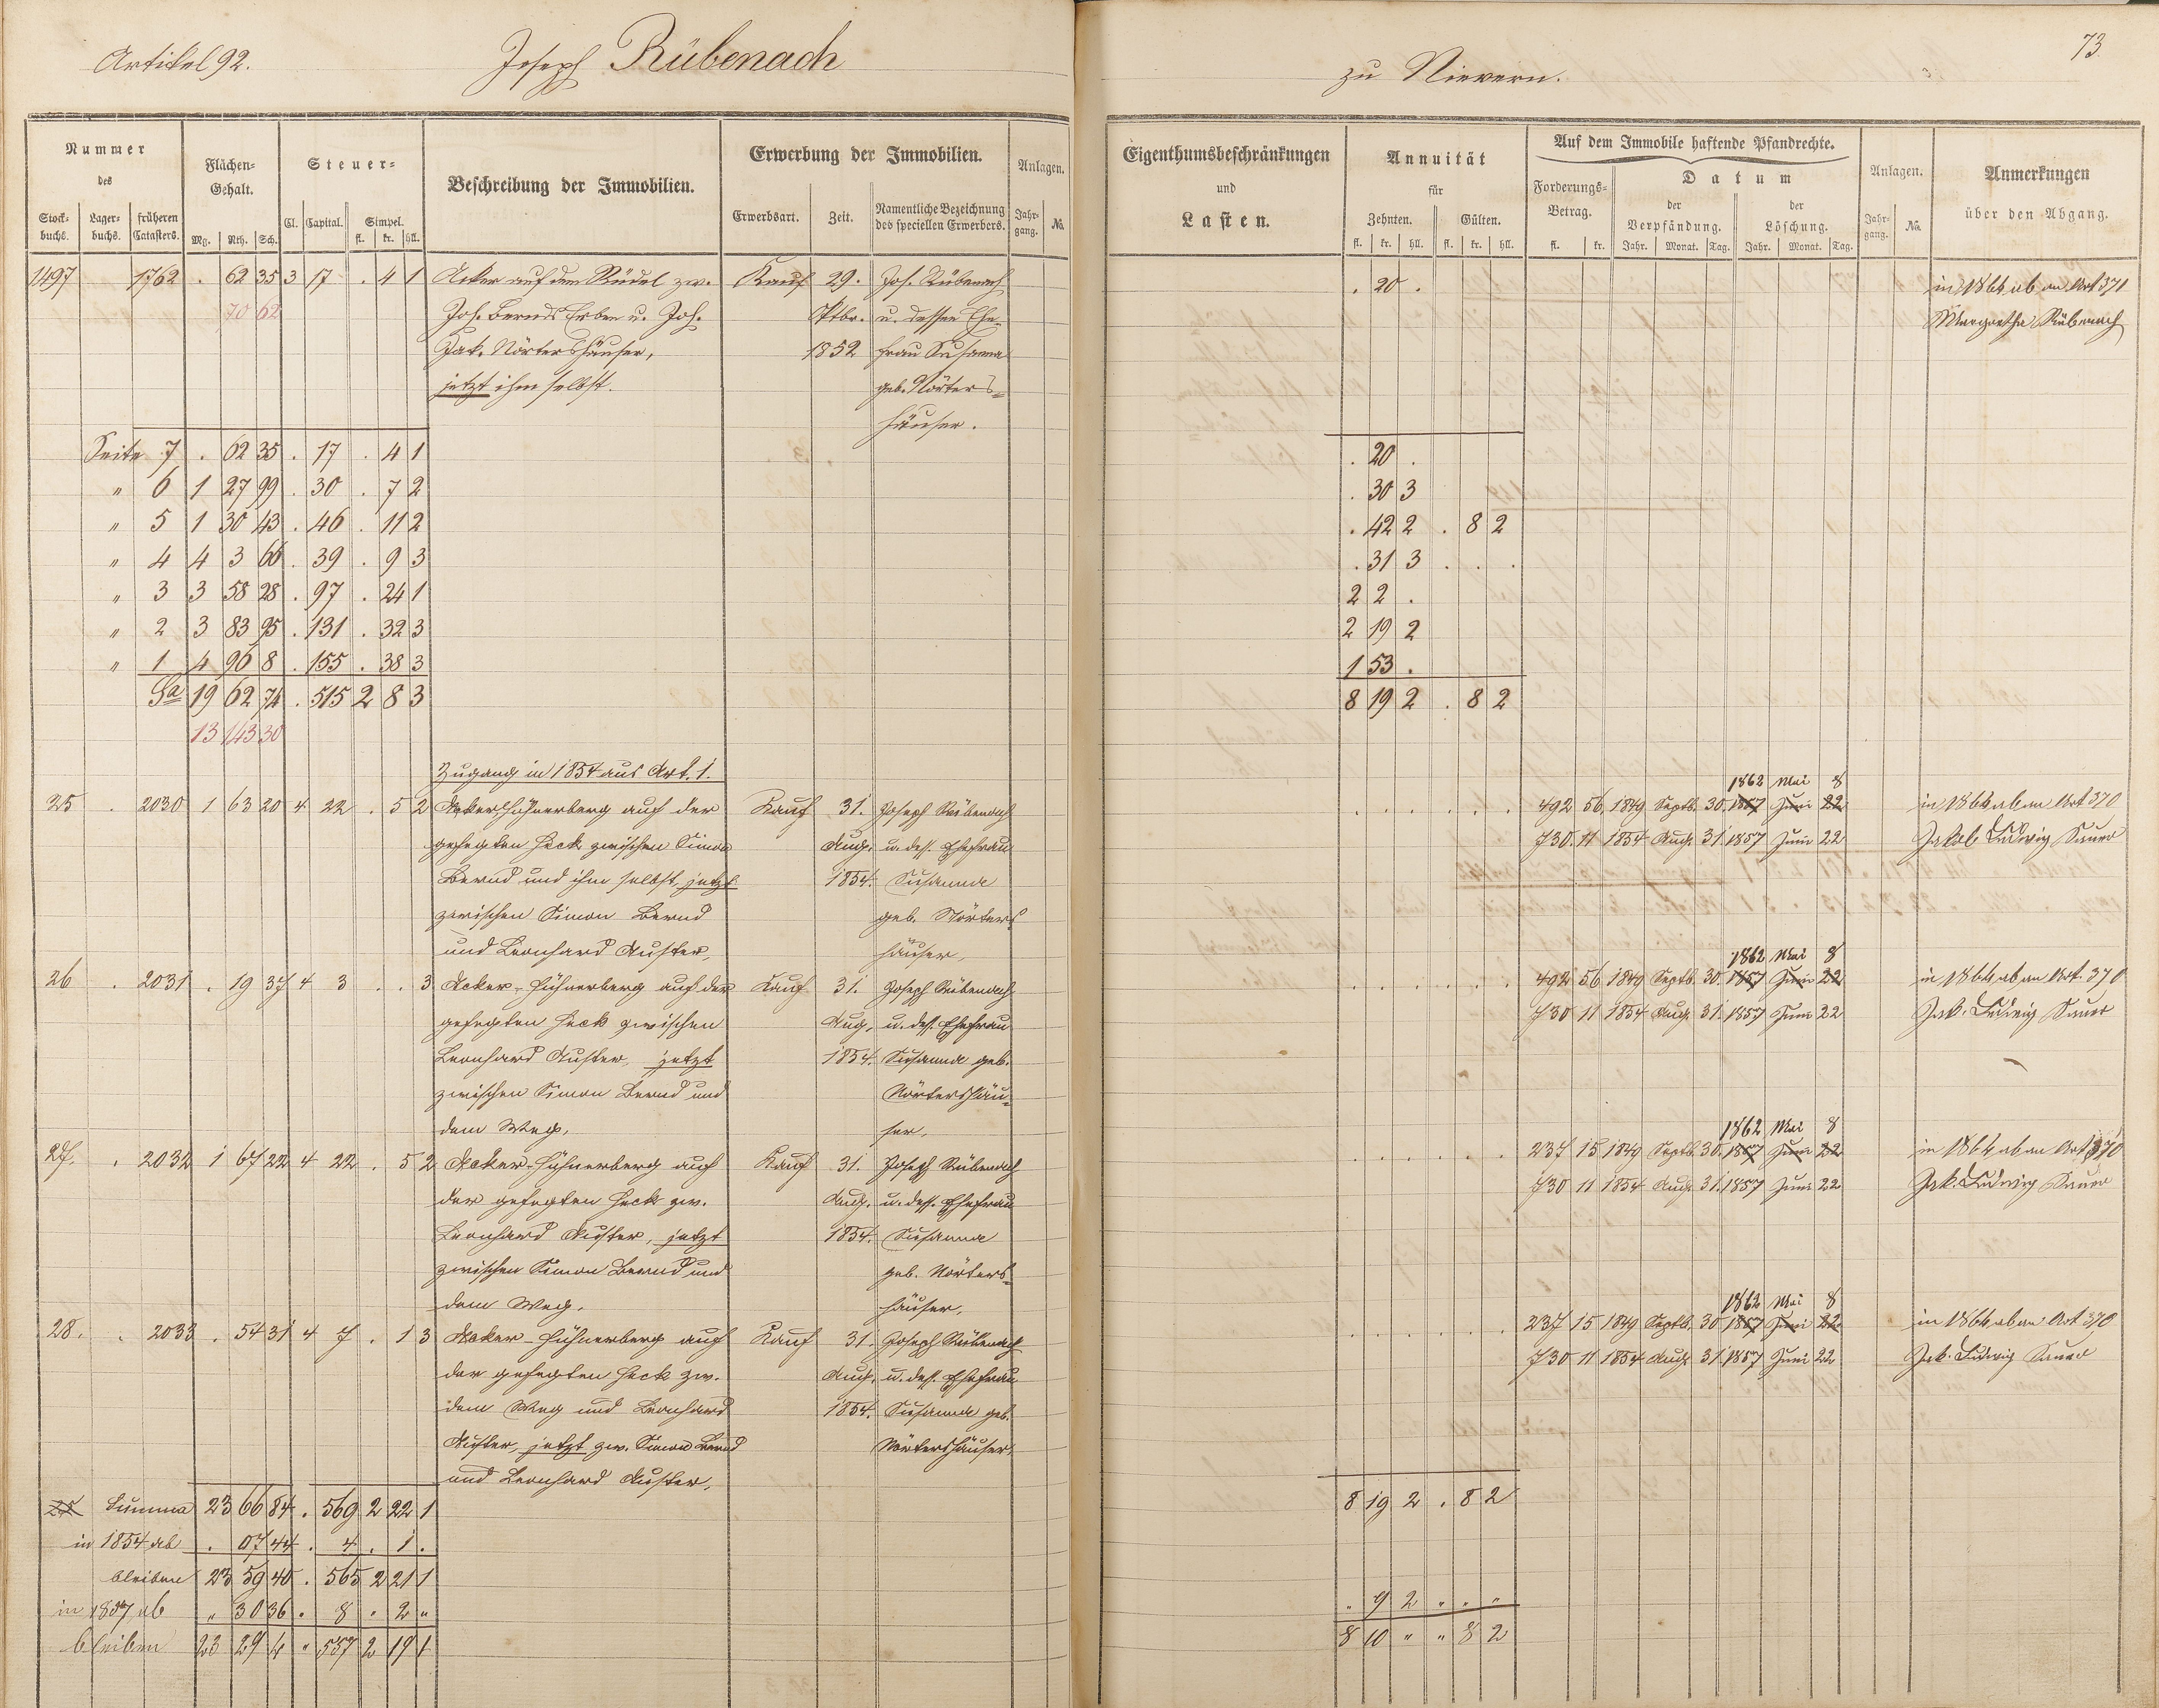 Artikel 92. Joseph Rübenach
zu Nievern. 73
Nummer des
Stockbuchs. Lagerbuchs. früheren Catasters.
Flächen-Gehalt.
Mg. Rth. Sch.
Steuer-
Cl. Capital. Simpel.
fl. kr. hll.
Beschreibung der Immobilien.
Erwerbung der Immobilien.
Erwerbsart. Zeit. Namentliche Bezeichnung des speciellen Erwerbers.
Anlagen.
Jahrgang. No.
Eigenthumsbeschränkungen
und
Lasten.
Annuität
für
Zehnten. Gülten.
fl. kr. hll. fl. kr. hll.
Auf dem Immobile haftende Pfandrechte.
Forderungs-Betrag.
fl. kr.
Datum
der Verpfändung. der Löschung.
Jahr. Monat. Tag. Jahr. Monat. Tag.
Anlagen.
Jahrgang. No.
Anmerkungen
über den Abgang.
1497 1762 . 62 35 3 17 . 4 1 Acker auf dem Rüdel zw. Kauf 29. Jos. Rübenach . 20 . in 1864 ab an Art 371
70 62 Joh. Bernds Erben u. Joh. Oktbr. u. dessen Ehe- Margaretha Rübenach
Jak. Nörtershäuser, 1852 frau Susanna
jetzt ihm selbst. geb. Nörters-
häuser.
Seite 7 . 62 35 . 17 . 4 1 . 20 .
" 6 1 27 99 . 30 . 7 2 . 30 3
" 5 1 30 43 . 46 . 11 2 . 42 2 . 8 2
" 4 4 3 66 . 39 . 9 3 . 31 3 . . .
" 3 3 58 28 . 97 . 24 1 2 2 .
" 2 3 83 95 . 131 . 32 3 2 19 2
" 1 4 96 8 . 155 . 38 3 1 53 .
Sa 19 62 74 . 515 2 8 3 8 19 2 . 8 2
13 143 30
Zugang in 1854 aus Art. 1.
1862 Mai 8
25 . 2030 1 63 20 4 22 . 5 2 Acker Hühnerberg auf der Kauf 31. Joseph Rübenach . . . . . . 492 56 1849 Septb. 30. 1857 Juni 22 in 1864 ab an Art 370
gefegten Heck zwischen Simon Aug. u. dess. Ehefrau 730 11 1854 Aug. 31. 1857 Juni 22 Jakob Ludwig Sauer
Bernd und ihm selbst, jetzt 1854. Susanna
zwischen Simon Bernd geb. Nörters
und Leonhard Auster, häuser,
1862 Mai 8
26 . 2031 . 19 37 4 3 . . 3 Acker-Hühnerberg auf der Kauf 31. Joseph Rübenach . . . . . . 492 56 1849 Septb. 30. 1857 Juni 22 in 1864 ab an Art. 370
gefegten Heck zwischen Aug. u. dess. Ehefrau 730 11 1854 Aug. 31. 1857 Juni 22 Jak. Ludwig Sauer
Leonhard Auster, jetzt 1854. Susanna geb.
zwischen Simon Bernd und Nörtershäu-
dem Weg, ser,
1862 Mai 8
27. . 2032 1 67 22 4 22 . 5 2 Acker-Hühnerberg auf Kauf 31. Joseph Rübenach . . . . . . 237 15 1849 Septb. 30. 1857 Juni 22 in 1864 ab an Art 370
der gefegten Heck zw. Aug. u. dess. Ehefrau 730 11 1854 Aug. 31. 1857 Juni 22 Jak. Ludwig Sauer
Leonhard Auster, jetzt 1854. Susanna
zwischen Simon Bernd und geb. Nörters-
dem Weg. häuser,
1862 Mai 8
28. . 2033 . 54 31 4 7 . 1 3 Acker-Hühnerberg auf Kauf 31. Joseph Rübenach . . . . . . 237 15 1849 Septb. 30 1857 Juni 22 in 1864 ab an Art 370
der gefegten Heck zw. Aug. u. dess. Ehefrau 730 11 1854 Aug. 31 1857 Juni 22 Jak. Ludwig Sauer
dem Weg und Leonhard 1854. Susanna geb.
Auster, jetzt zw. Simon Bernd Nörtershäuser,
und Leonhard Auster,
28 Summa 23 66 84 . 569 2 22 1 8 19 2 . 8 2
in 1854 ab . 07 44 . 4 . 1 .
bleiben 23 59 40 . 565 2 21 1
in 1857 ab " 30 36 . 8 . 2 " " 9 2 " " "
bleiben 23 29 4 " 557 2 19 1 8 10 " " 8 2